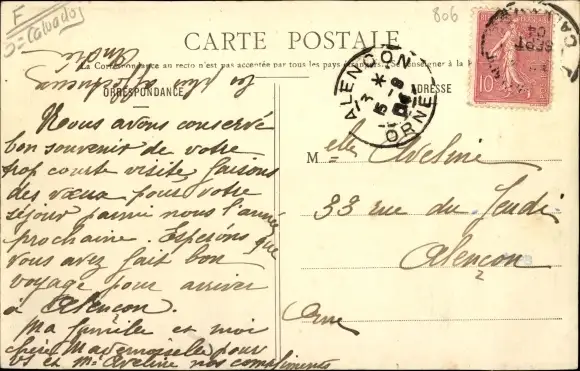 F
Calvados
806
CARTE POSTALE
La Correspondance au recto n'est pas acceptée par tous les pays étrangers. Se renseigner à la
CORRESPONDANCE
ADRESSE
ALENÇON
ORNE
SEPT
04
10
Nous avons conservé
bon souvenir de votre
trop courte visite, faisons
des vœux pour votre
séjour parmi nous l'année
prochaine. Espérons que
vous avez fait bon
voyage pour arriver
à Alençon.
Ma famille et moi
chère Mademoiselle pour
vs et Me Aveline nos compliments
Melle Aveline
33 rue du Jeudi
Alençon
Orne